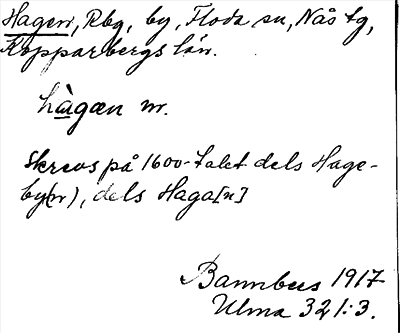 Hagen, Rbg, by, Floda sn, Nås tg,
Kopparbergs län.
hàgæn nr.
Skrevs på 1600-talet dels Hage-
by(n), dels Haga[n]
Bannbers 1917
Ulma 321:3.